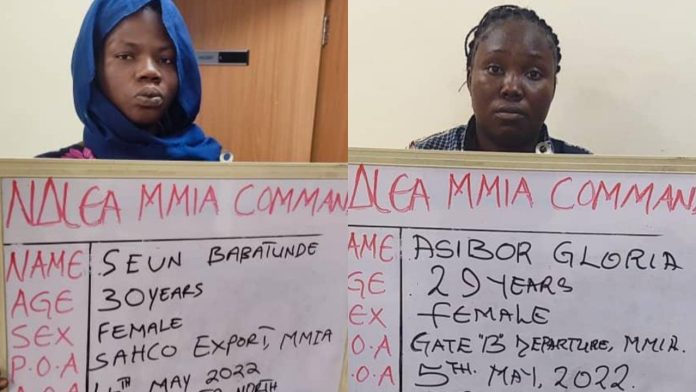 NDLEA MMIA COMMAN
NAME SEUN BABATUNDE
AGE 30YEARS
SEX FEMALE
P.O.A SAHCO EXPORT, MMIA
MAY 2022
NORTH
DLEA MMIA COMMANA
AME ASIBOR GLORIA
GE 29 YEARS
EX FEMALE
O.A GATE "B" DEPARTURE, MMIA.
5TH. MAY, 2022.